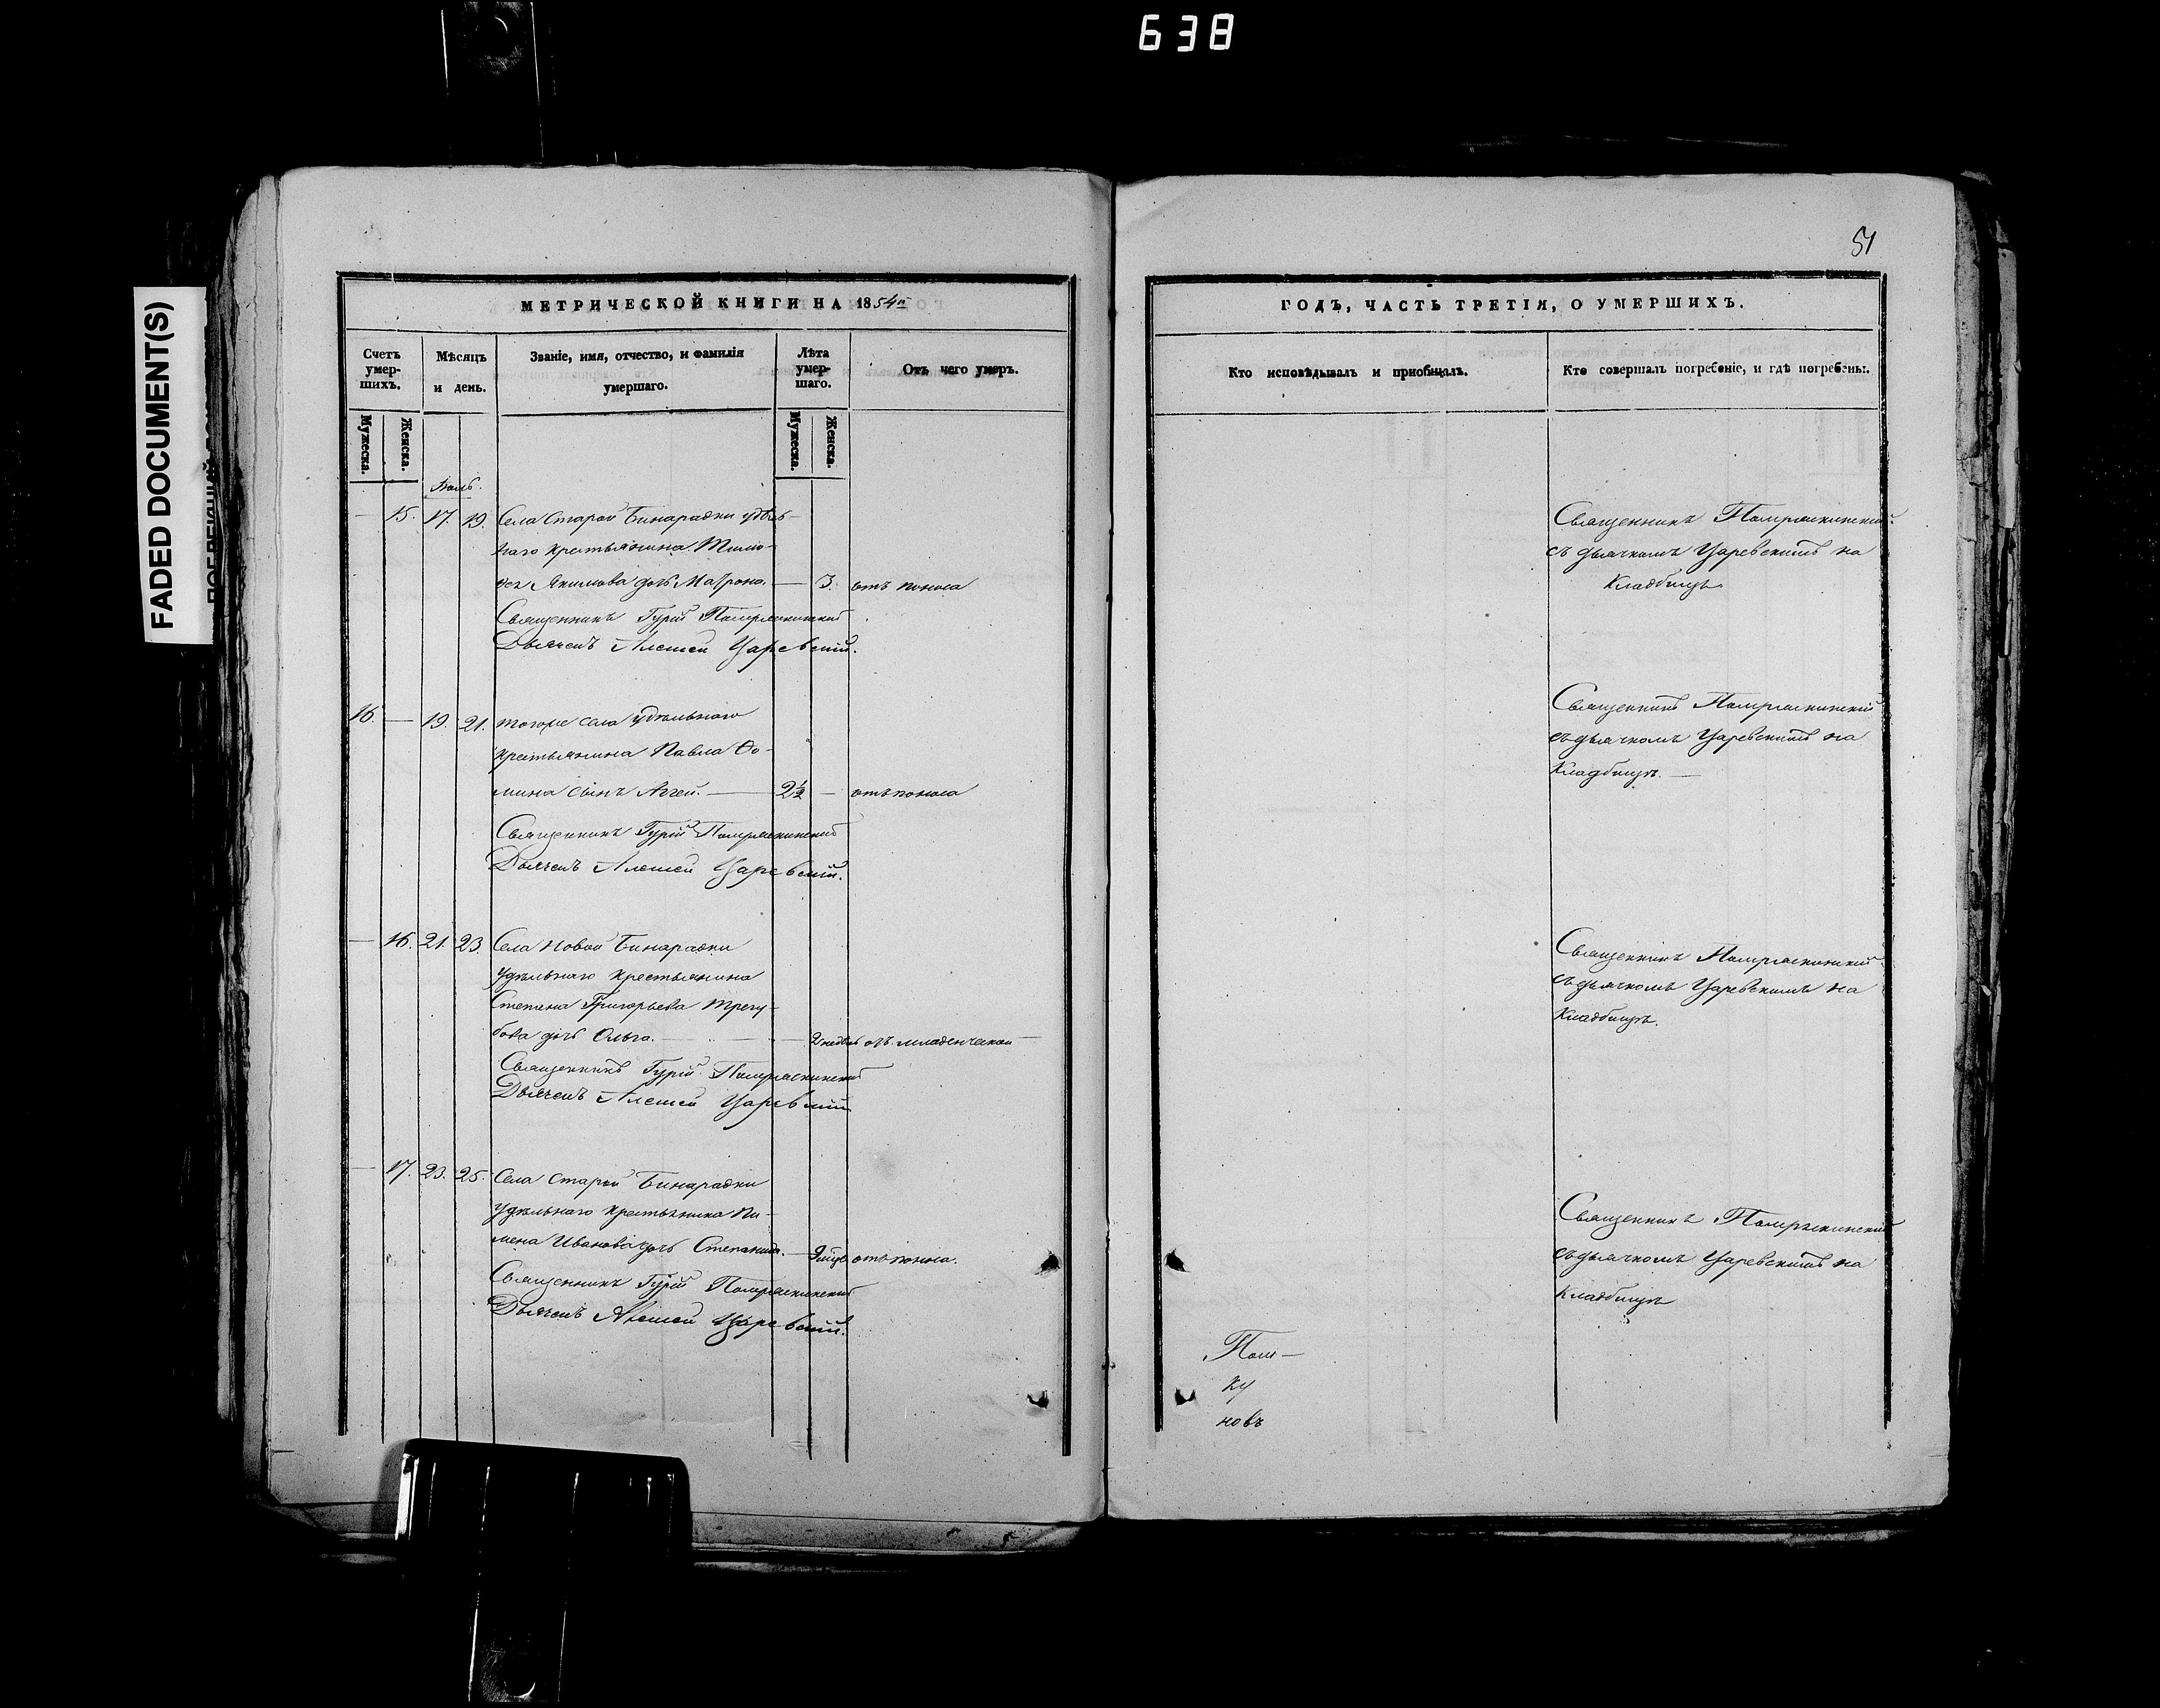 638
FADED DOCUMENT(S)
51
МЕТРИЧЕСКОЙ КНИГИ НА 1854й
Счетъ умер-шихъ.
Мѣсяцъ и день.
Званіе, имя, отчество, и фамилія умершаго.
Лѣта умер-шаго.
Отъ чего умеръ.
Мужеска.
Женска.
Мужеска.
Женска.
Іюль.
— 15. 17. 19. Села Старой Бинарадки удѣль-
наго крестьянина Тимо-
фея Якимова дочь Матрона. — 3. отъ поноса
Священникъ Гурій
Дьячекъ Алексей Царевскій.
16. — 19. 21. тогоже села удѣльнаго
крестьянина Павла Ѳо-
мина сынъ Аггей. — 2½ — отъ поноса
Священникъ Гурій
Дьячекъ Алексей Царевскій.
— 16. 21. 23. Села Новой Бинарадки
удѣльнаго крестьянина
Степана Григорьева Трегу-
бова дочь Ольга. — 2 недѣль отъ младенческой
Священникъ Гурій
Дьячекъ Алексей Царевскій
— 17. 23. 25. Села Старой Бинарадки
удѣльнаго крестьянина Пи-
мена Иванова дочь Степанида. — отъ поноса.
Священникъ Гурій
Дьячекъ Алексей Царевскій.
ГОДЪ, ЧАСТЬ ТРЕТІЯ, О УМЕРШИХЪ.
Кто исповѣдывалъ и приобщалъ.
Кто совершалъ погребеніе, и гдѣ погребены.
Священникъ
съ дьячкомъ Царевскимъ на
Кладбищѣ
Священникъ
съ дьячкомъ Царевскимъ на
Кладбищѣ. —
Священникъ
съ дьячкомъ Царевскимъ на
Кладбищѣ.
Священникъ
съ дьячкомъ Царевскимъ на
Кладбищѣ
ку
новъ